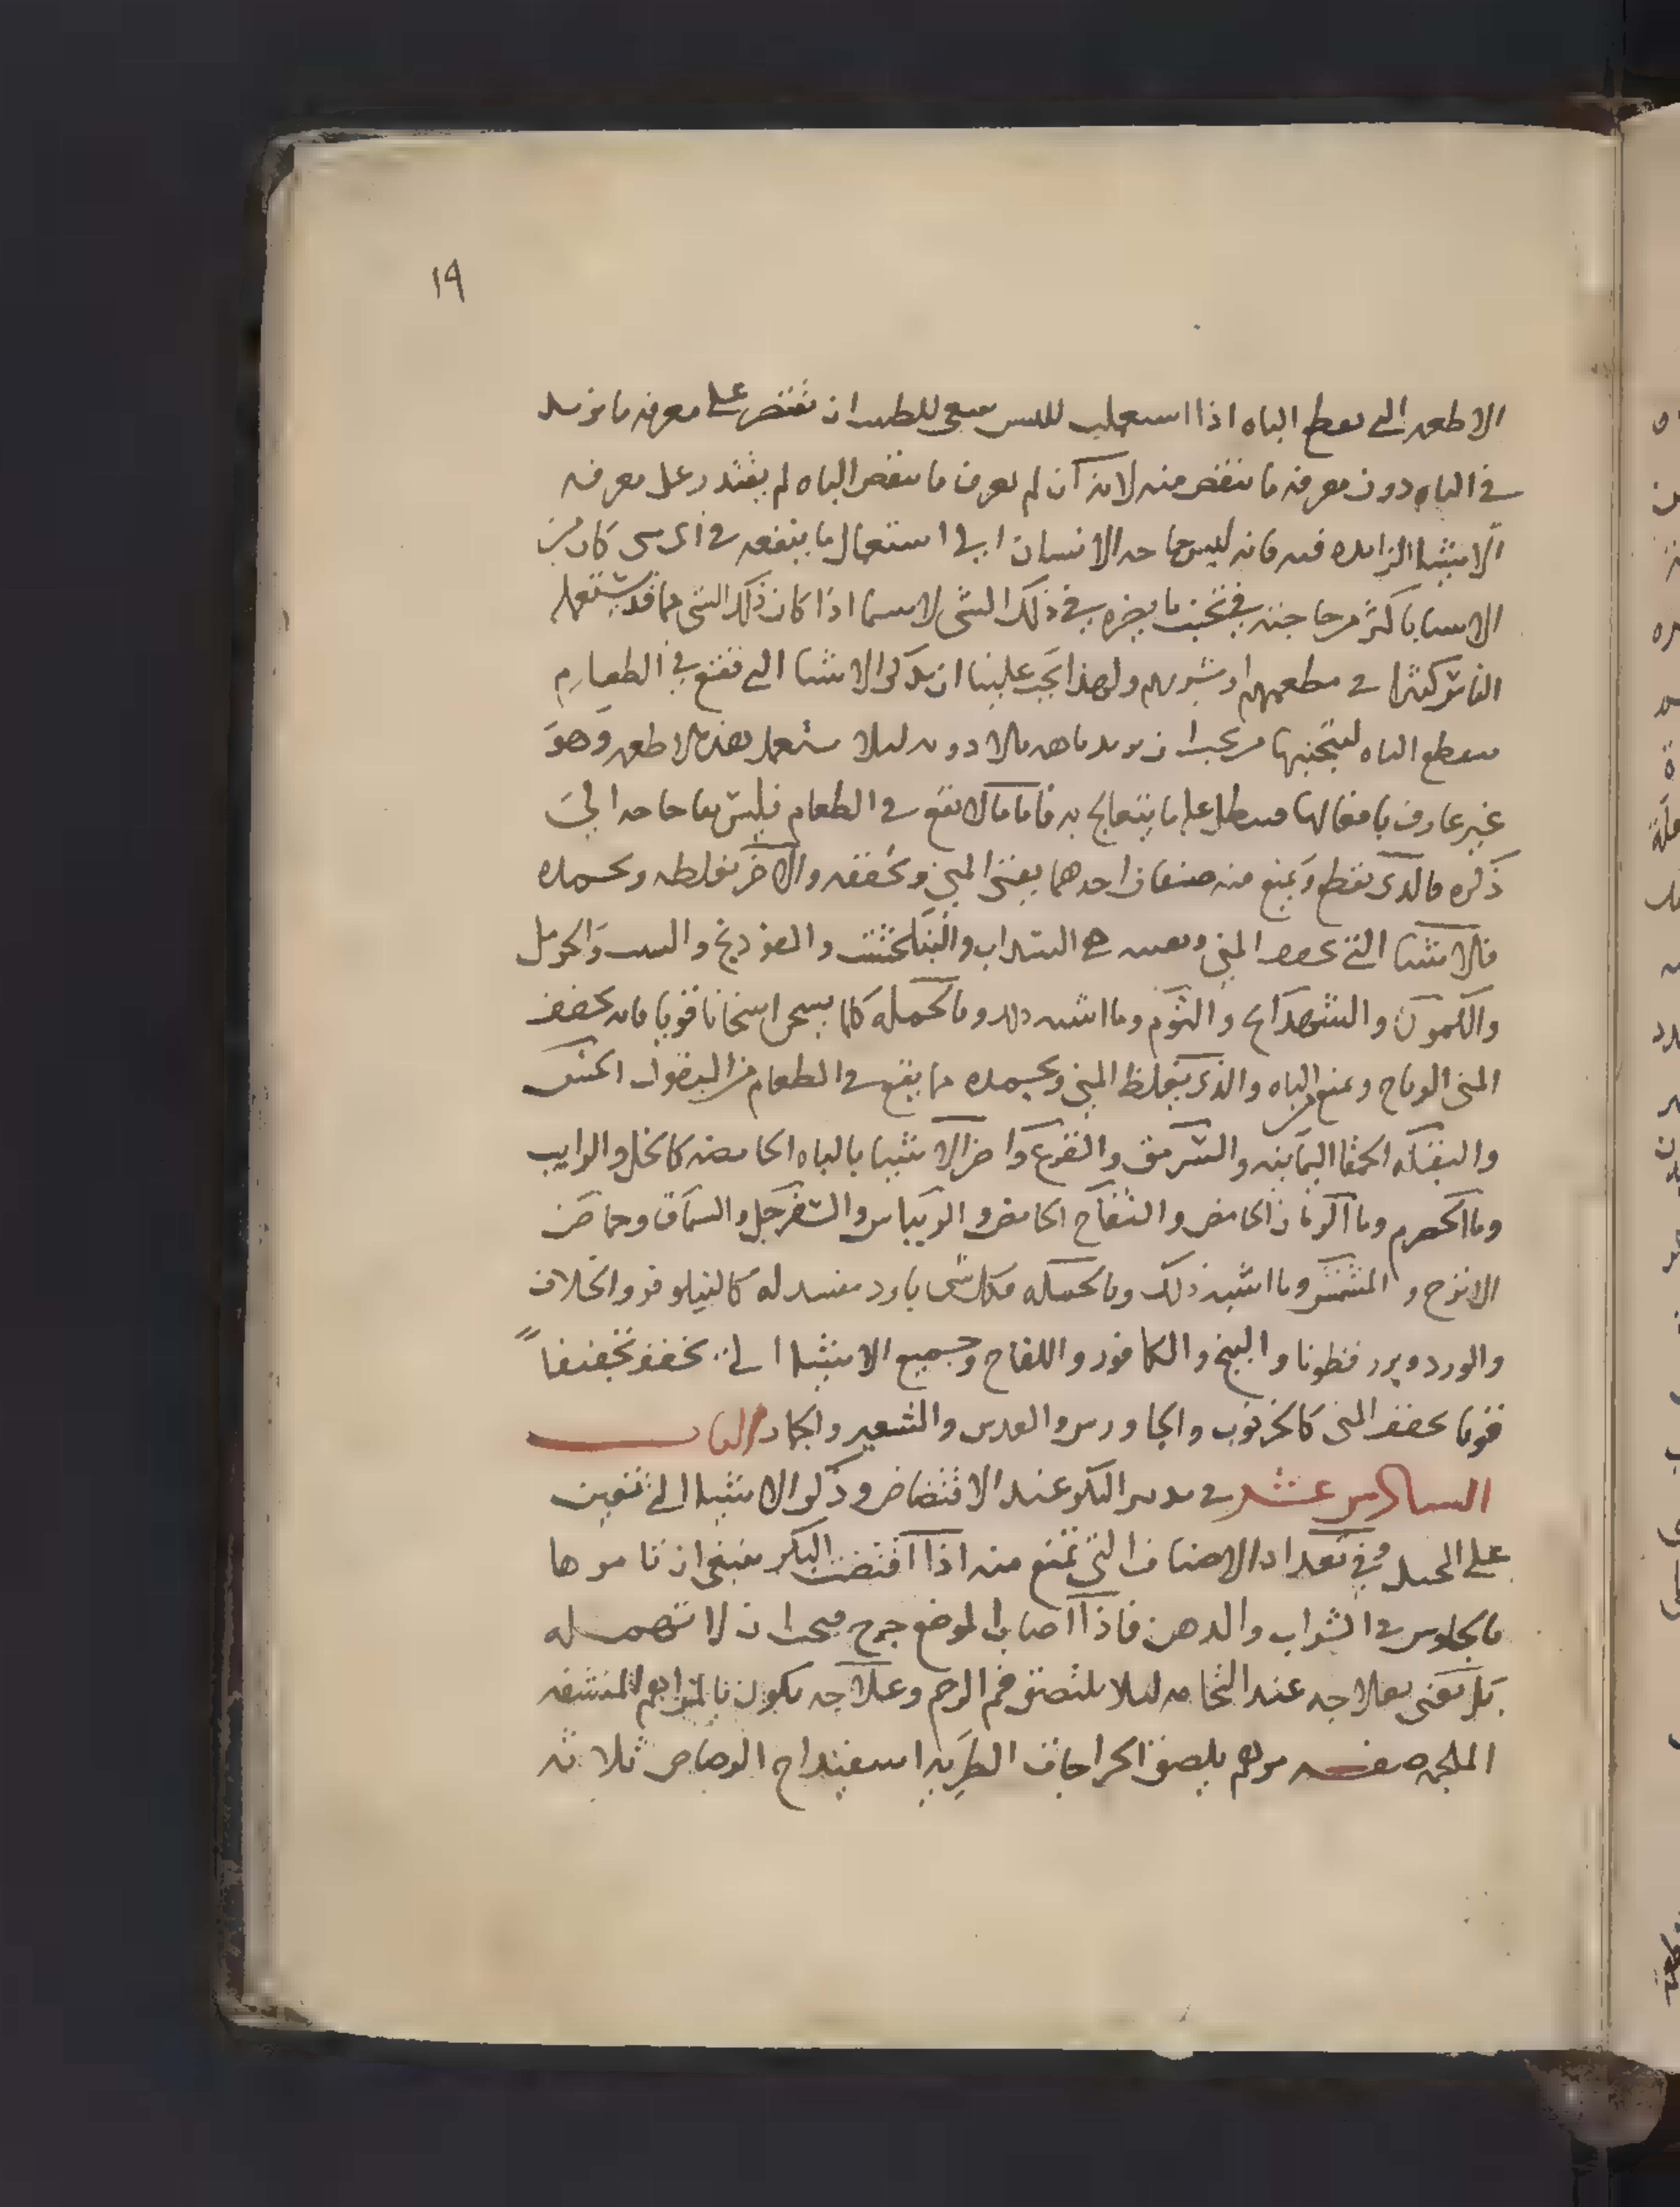 ١٩
الاطعمه التى تقطع الباه اذا استعملت لليس ينبغى للطبيب ان يقتصر على معرفه ما يزيد
فى الباه دون معرفه ما ينقص منه لانه ان لم يعرف ما ينقص الباه لم يقتدر على معرفه
الاشيا الزايده فيه فانه ليس حاجه الانسان الى استعمال ما ينفعه فى اى شى كان من
الاسباب باكثر من حاجته فى تجنب ما يضره فى ذلك الشى لا سيما اذا كان ذلك الشى مما قد يستعمله
الناس كثيرا فى مطعمهم او مشربهم ولهذا يجب علينا ان نذكر الاشيا التى تقع فى الطعام
فتقطع الباه ليتجنبها من يجب ان يزيد باهه بالادويه ليلا يستعمل هذه الاطعمه وهو
غير عارف بافعالها فيبطل عليه ما يتعالج به فاما ما لا يقع فى الطعام فليس بنا حاجه الى
ذكره فالذى يقطع ويمنع منه صنفان احدهما يفنى المنى ويجففه والاخر يغلظه ويجمده
فالاشيا التى تجفف المنى وتفنيه هى السداب والبنجنكشت والفودنج والشبت والحرمل
والكمون والشهدانج والثوم وما اشبه ذلك وبالجمله كلما يسخن اسخانا قويا فانه يجفف
المنى الرياح ويمنع الباه والذى يغلظ المنى ويجمده مما يقع فى الطعام من البقول الخس
والبقله الحمقا اليمانيه والسرمق والقرع واضر الاشيا بالباه الحامضه كالخل والرايب
وما الحصرم وما الرمان الحامض والتفاح الحامض والريباس والسفرجل والسماق وحماض
الاترج والمشمش وما اشبه ذلك وبالجمله فكل شى بارد مفسد له كالنيلوفر والخلاف
والورد وبزر قطونا والبنج والكافور واللفاح وجميع الاشيا التى تجفف تجفيفا
قويا يجفف المنى كالخرنوب والجاورس والعدس والشعير والجاد الباب
السادس عشر فى تدبير البكر عند الافتضاض وذكر الاشيا التى تعين
على الحبل وفى تعداد الاصناف التى تمنع منه اذا افتضت البكر فينبغى ان تامرها
بالجلوس فى الشراب والدهن فاذا اصاب الموضع جرح فيجب ان لا تهمله
بل يعنى بعلاجه عند التحامه ليلا يلتصق فم الرحم وعلاجه يكون بالمراهم المنشفه
الملحمه صفه مرهم يلصق الجراحات الطريه اسفيداج الرصاص ثلاثه